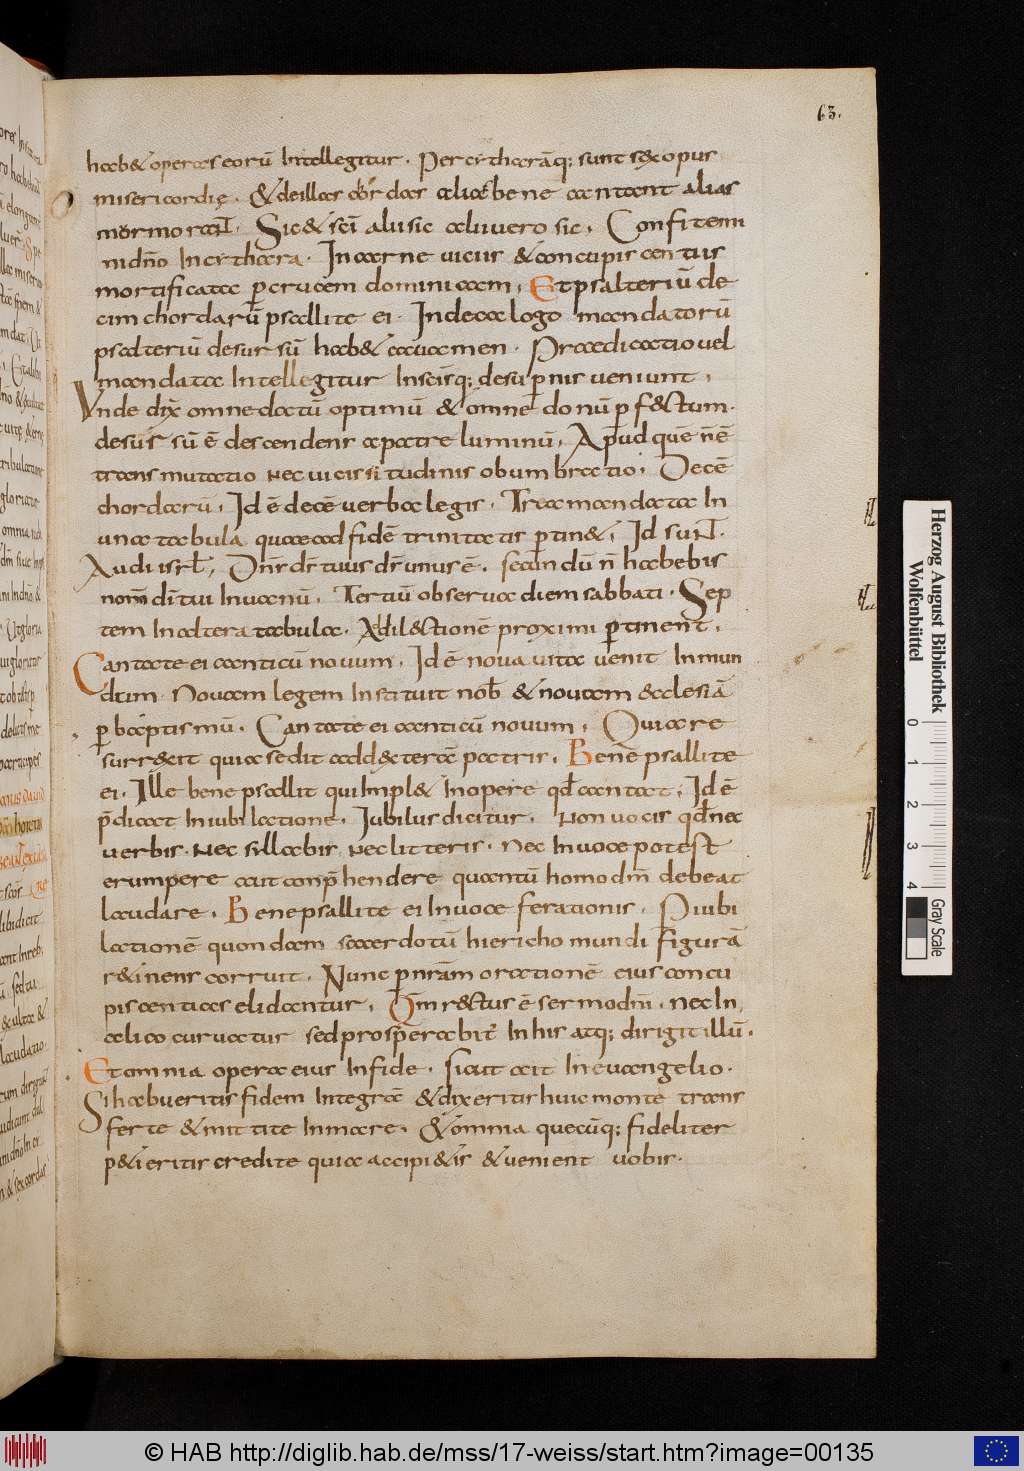 63.
hab& operas eorū Intellegitur. Per cytharāq; sunt sex opus
misericordię. & deillas cordas alias bene cantant alias
mormorant. Sic & sci alii sic alii vero sic. Confitemi
ni dño In cythara. In carne vicius & concupiscentus
mortificatae per crucem dominicam. Et psalteriū de
cim chordarū psallite ei. In decalogo mandatorū
psalteriū desursū hab& cacumen. Praedicatio vel
mandata Intellegitur In scisq; desup nis veniunt.
Unde dix omne datū optimū & omne donū pf&ctum.
desus sū ē descendens a patre luminū, Apud quē nē
transmutatio nec vicissitudinis obumbratio. Decē
chordarū, Id ē decē verba legis. Tria mandata In
una tabula quae ad fidē trinitatis ptin&, Id sunt.
Audi isrl, Dns ds tuus ds unus ē. secundū n̄ habebis
nomn̄ di tui In vanū. Tertiū observa diem sabbati. Sep
tem In altera tabula. Ad dil&ctionē proximi ptinent.
Cantate ei canticū novum. Id ē nova vita venit In mun
dum. Novam legem Instituit nob & novam ecclesiā
p baptismū. Cantate ei canticū novum, Quia re
surrexit quia sedit ad dexterā patris. Bene psallite
ei. Ille bene psallit qui Impl& In opere qd cantat, Id ē
p̄dicat In iubilatione. Iubilus dicitur, Non vocis qd nec
verbis. Nec syllabis, nec litteris. nec In voce potest
erumpere aut conp̄hendere quantū homo dm̄ debeat
laudare. Bene psallite ei In voce ferationis. P iubi
lationē quondam sacerdotū hiericho mundi figurā
r&inens corruit. Nunc p nrām orationē eius concu
piscentias elidantur. Qm̄ rectus ē sermo dni. nec In
alico curvatur sed prosperabit In his atq; dirigit illū.
Et omnia opera eius In fide. sicut ait In evangelio.
Si habueritis fidem Integrā & dixeritis huic monte trans
ferte & mittite In mare. & omnia quecūq; fideliter
p&ieritis credite quia accipi&is & venient vobis.
Herzog August Bibliothek
Wolfenbüttel
0 1 2 3 4
Gray Scale
© HAB http://diglib.hab.de/mss/17-weiss/start.htm?image=00135